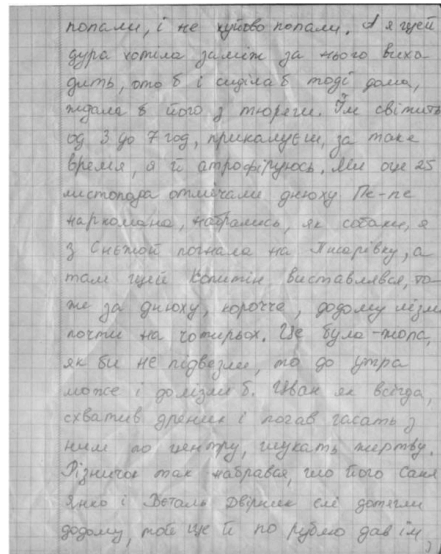 попали, і не хуйово попали. А я щей
дура хотіла заміж за нього вихо
дить, ото б і сиділа б тоді дома,
ждала б його з тюреги. Їм світить
од 3 до 7 год, прикалуєш, за таке
время, я й атрофіруюсь. Ми оце 25
листопада отмечали днюху Пє-пє
наркомана, набрались, як собаки, я
з Снєжой погнала на Яшарівку, а
там щей Копитін, виставлявся, то-
же за днюху, корочча, додому лізли
почти на чотирьох. Це була-жопа,
як би не підвезли, то до утра
може і долізли б. Иван як всігда,
схватив дрєник і почав гасать з
ним по центру, шукать жертву.
Різничок так набрався, шо його Саня
Янко і Вєталь Двірник єлі дотягли
додому, той ще й по рублю дав їм,